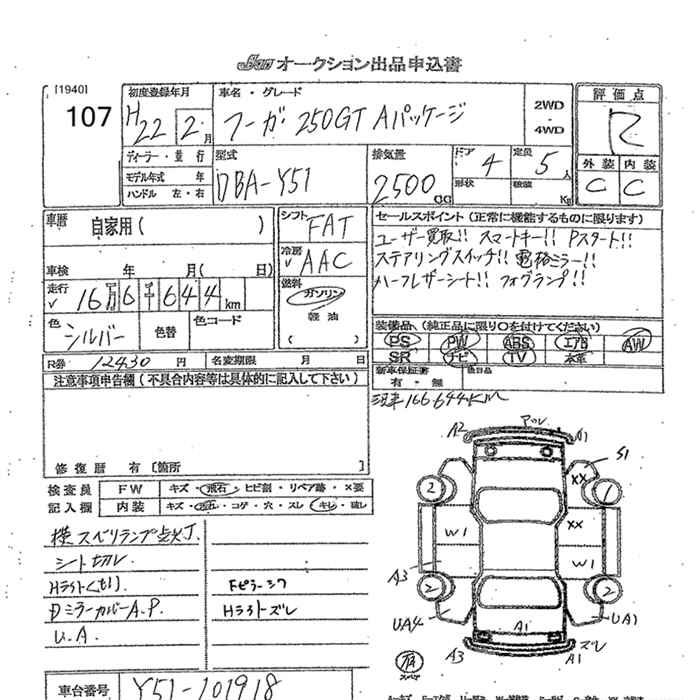 JAA オークション出品申込書
[1940]
107
初度登録年月
H22 2月
車名・グレード
フーガ 250GT Aパッケージ
2WD
・
4WD
評価点
R
外装 内装
C C
ディーラー・並行
モデル年式 年
ハンドル 左・右
型式
DBA-Y51
排気量
2500 CC
ドア
4
形状
定員
5人
積載
Kg
車歴
自家用( )
シフト
FAT
冷房
AAC
車検 年 月( 日)
走行
16万6千644km
燃料
ガソリン
軽油
( )
色
シルバー
色替
色コード
R券 12430 円
名変期限 月 日
セールスポイント (正常に機能するものに限ります)
ユーザー買取!! スマートキー!! Pスタート!!
ステアリングスイッチ!! 電格ミラー!!
ハーフレザーシート!! フォグランプ!!
装備品 (純正品に限り〇を付けてください)
PS PW ABS エアB AW
SR ナビ TV 本革
新車保証書
有・無
後日品
現車166644KM
注意事項申告欄 (不具合内容等は具体的に記入して下さい)
修復歴 有 [箇所 ]
検査員
記入欄
FW キズ・飛石・ヒビ割・リペア跡・X要
内装 キズ・汚れ・コゲ・穴・スレ・キレ・破レ
横スベリランプ点灯
シート切レ
Hライトくもり
DミラーカバーA.P.
U.A.
Fピラーシワ
Hライトズレ
車台番号 Y51-101918
A2 A1
S1
XX
2 1
W1 XX
W1
A3
2 2
UA4 UA1
A1
A3 A1 ズレ
スペア